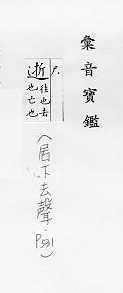 彙音寶鑑
尸
逝 往也去也亡也
(居下去聲,P591)